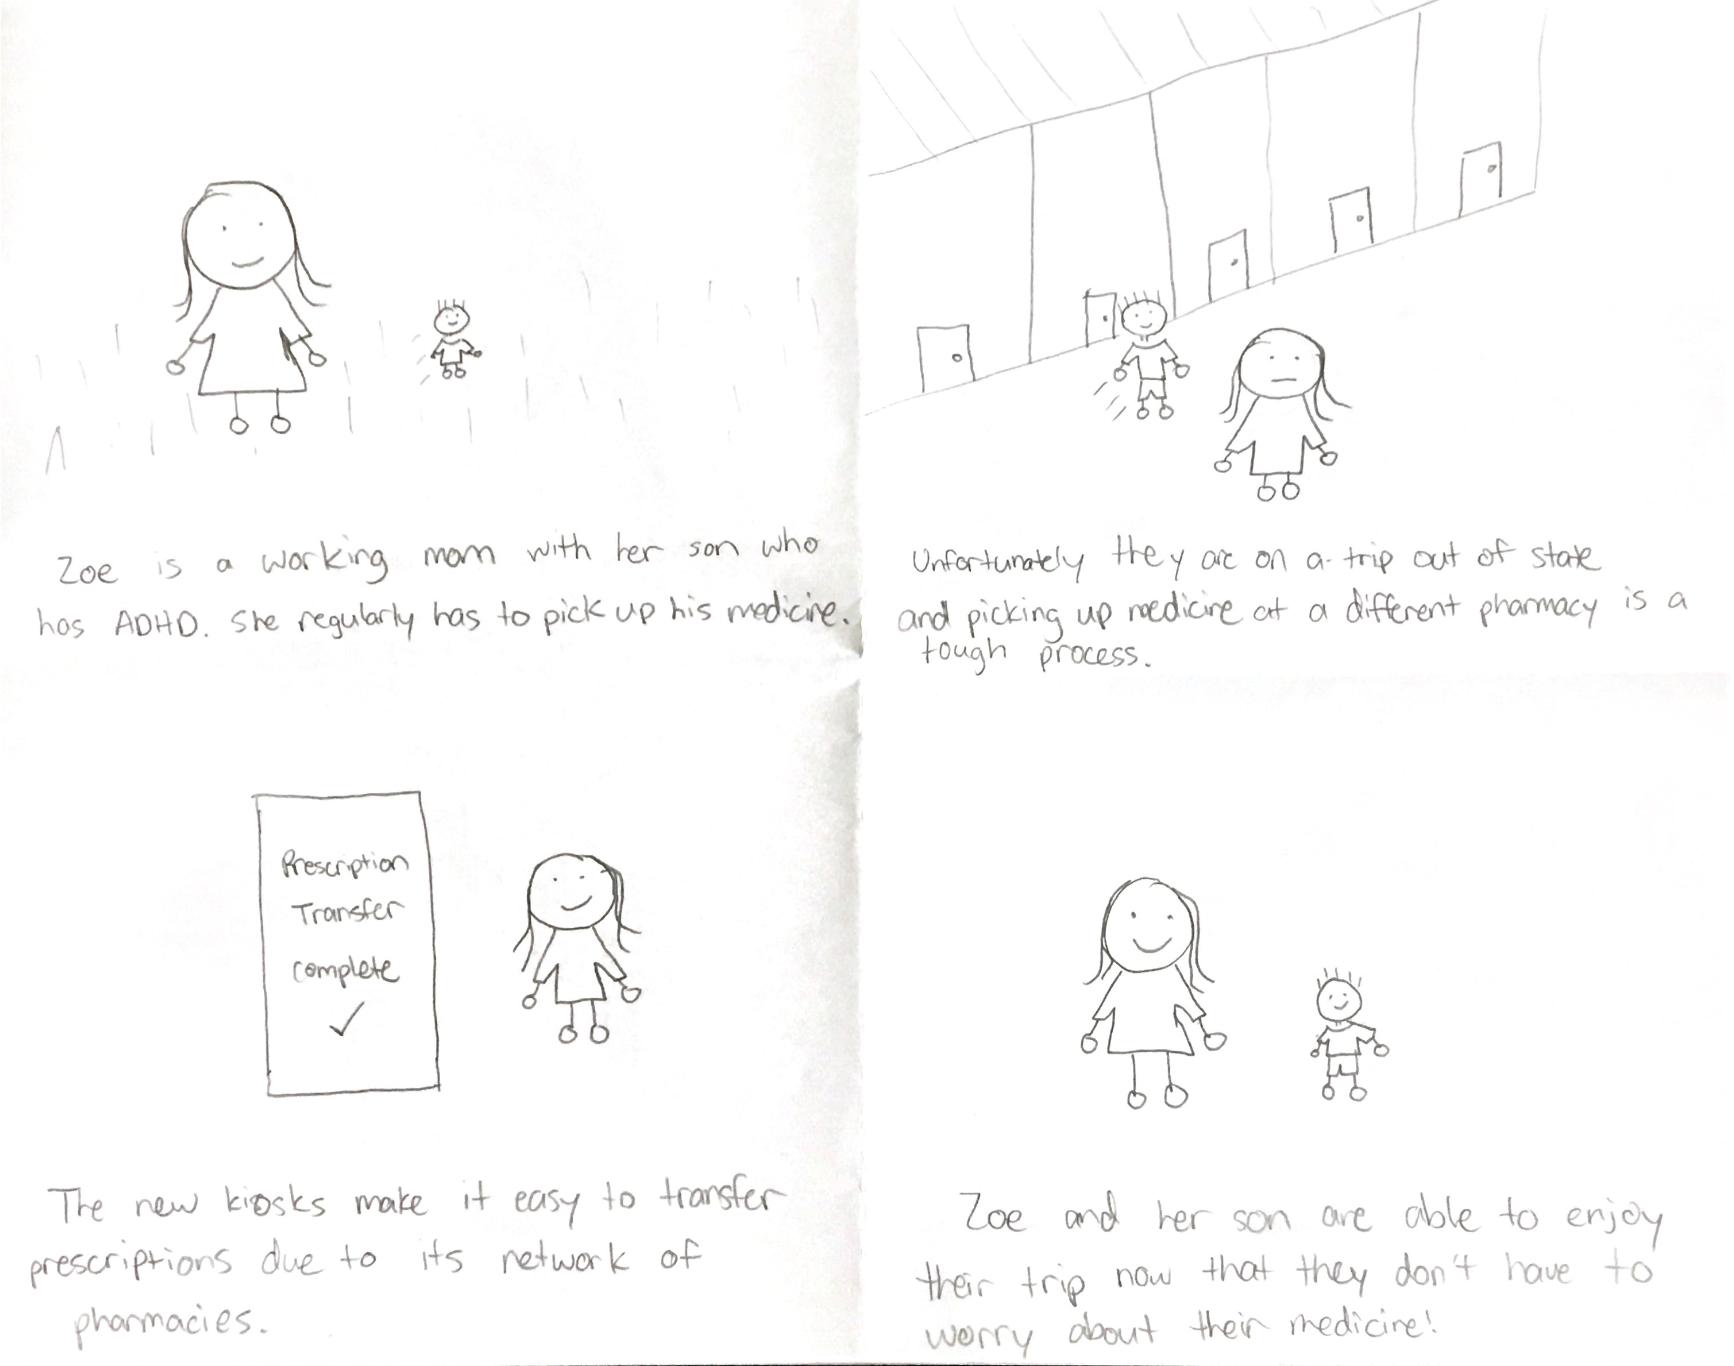 Zoe is a working mom with her son who
has ADHD. She regularly has to pick up his medicine.
Unfortunately they are on a trip out of state
and picking up medicine at a different pharmacy is a
tough process.
Prescription
Transfer
complete
✓
The new kiosks make it easy to transfer
prescriptions due to its network of
pharmacies.
Zoe and her son are able to enjoy
their trip now that they don't have to
worry about their medicine!